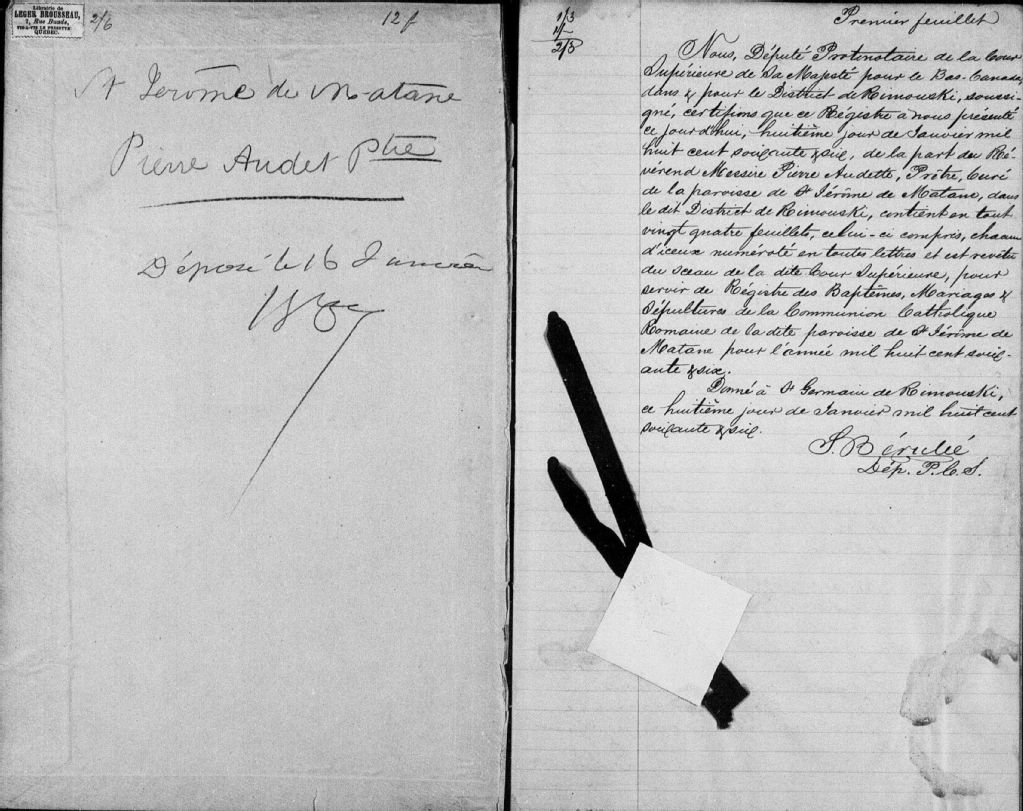 Librairie de
LEGER BROUSSEAU,
7, Rue Buade,
VIS-A-VIS LE PRESBYTÈRE
QUÉBEC.
2/6
12 f
St Jerôme de Matane
Pierre Audet Ptre
Déposé le 16 Janvier
1867
1/3
1/-
2/3
Premier feuillet
Nous, Député Protonotaire de la Cour
Supérieure de Sa Majesté pour le Bas-Canada,
dans & pour le District de Rimouski, soussi-
gné, certifions que ce Régistre à nous présenté
ce jourd'hui, huitième jour de Janvier mil
huit cent soixante & six, de la part du Ré-
vérend Messire Pierre Audette, Prêtre, Curé
de la paroisse de St Jérôme de Matane, dans
le dit District de Rimouski, contient en tout
vingt quatre feuillets, celui-ci compris, chacun
d'iceux numéroté en toutes lettres et est revêtu
du sceau de la dite Cour Supérieure, pour
servir de Régistre des Baptêmes, Mariages &
Sépultures de la Communion Catholique
Romaine de la dite paroisse de St Jérôme de
Matane pour l'année mil huit cent soix-
ante & six.
Donné à St Germain de Rimouski,
ce huitième jour de Janvier mil huit cent
soixante & six.
Dép. P. C. S.